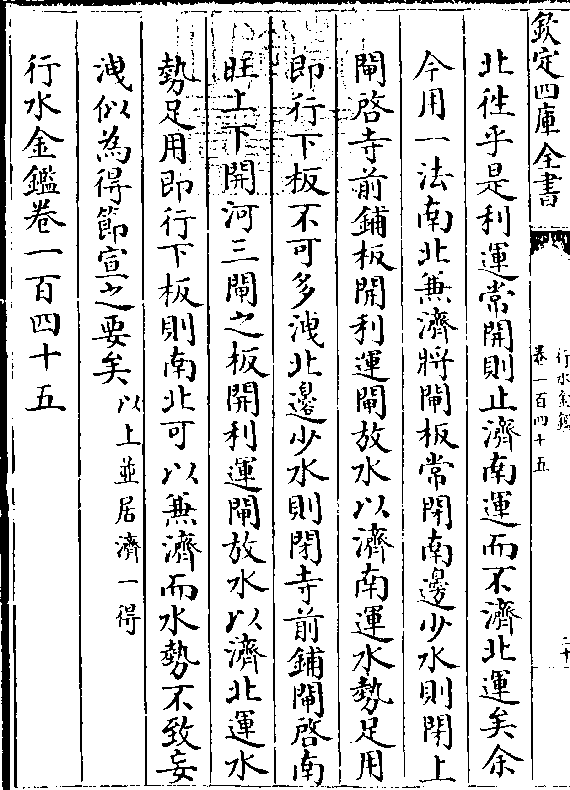 欽定四庫全書
行水金鑑
卷一百四十五
北往乎是利運常開則止濟南運而不濟北運矣余
今用一法南北兼濟將閘板常閉南邊少水則閉上
閘啓寺前鋪板開利運閘放水以濟南運水勢足用
即行下板不可多洩北邊少水則閉寺前鋪閘啓南
旺上下開河三閘之板開利運閘放水以濟北運水
勢足用即行下板則南北可以兼濟而水勢不致妄
洩似為得節宣之要矣以上並居濟一得
行水金鑑卷一百四十五